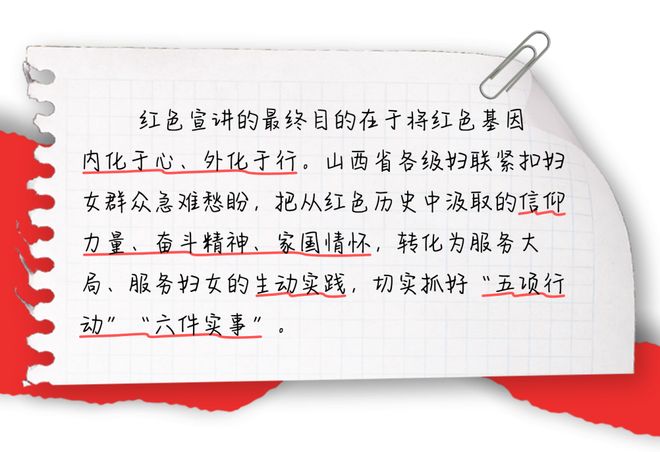 红色宣讲的最终目的在于将红色基因
内化于心、外化于行。山西省各级妇联紧扣妇
女群众急难愁盼，把从红色历史中汲取的信仰
力量、奋斗精神、家国情怀，转化为服务大
局、服务妇女的生动实践，切实抓好“五项行
动”“六件实事”。